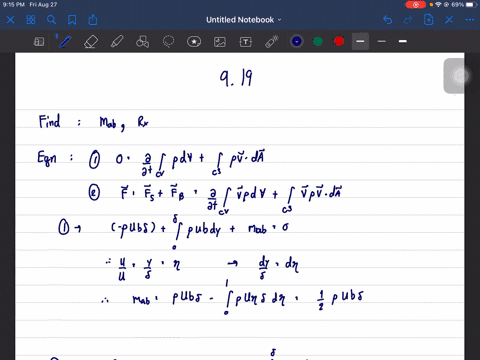 9:15 PM Fri Aug 27
69%
Untitled Notebook
9.19
Find : Mab, Rx
Eqn : ① 0 = ∂/∂t ∫cv ρdV + ∫cs ρv⃗·dA⃗
② F⃗ = F⃗s + F⃗B = ∂/∂t ∫cv v⃗ρdV + ∫cs v⃗ρv⃗·dA⃗
①→ (-ρUbδ) + ∫₀^δ ρubdy + mab = 0
∴ u/U = y/δ = η → dy/δ = dη
∴ mab = ρUbδ - ∫₀^1 ρUηδ dη = 1/2 ρUbδ